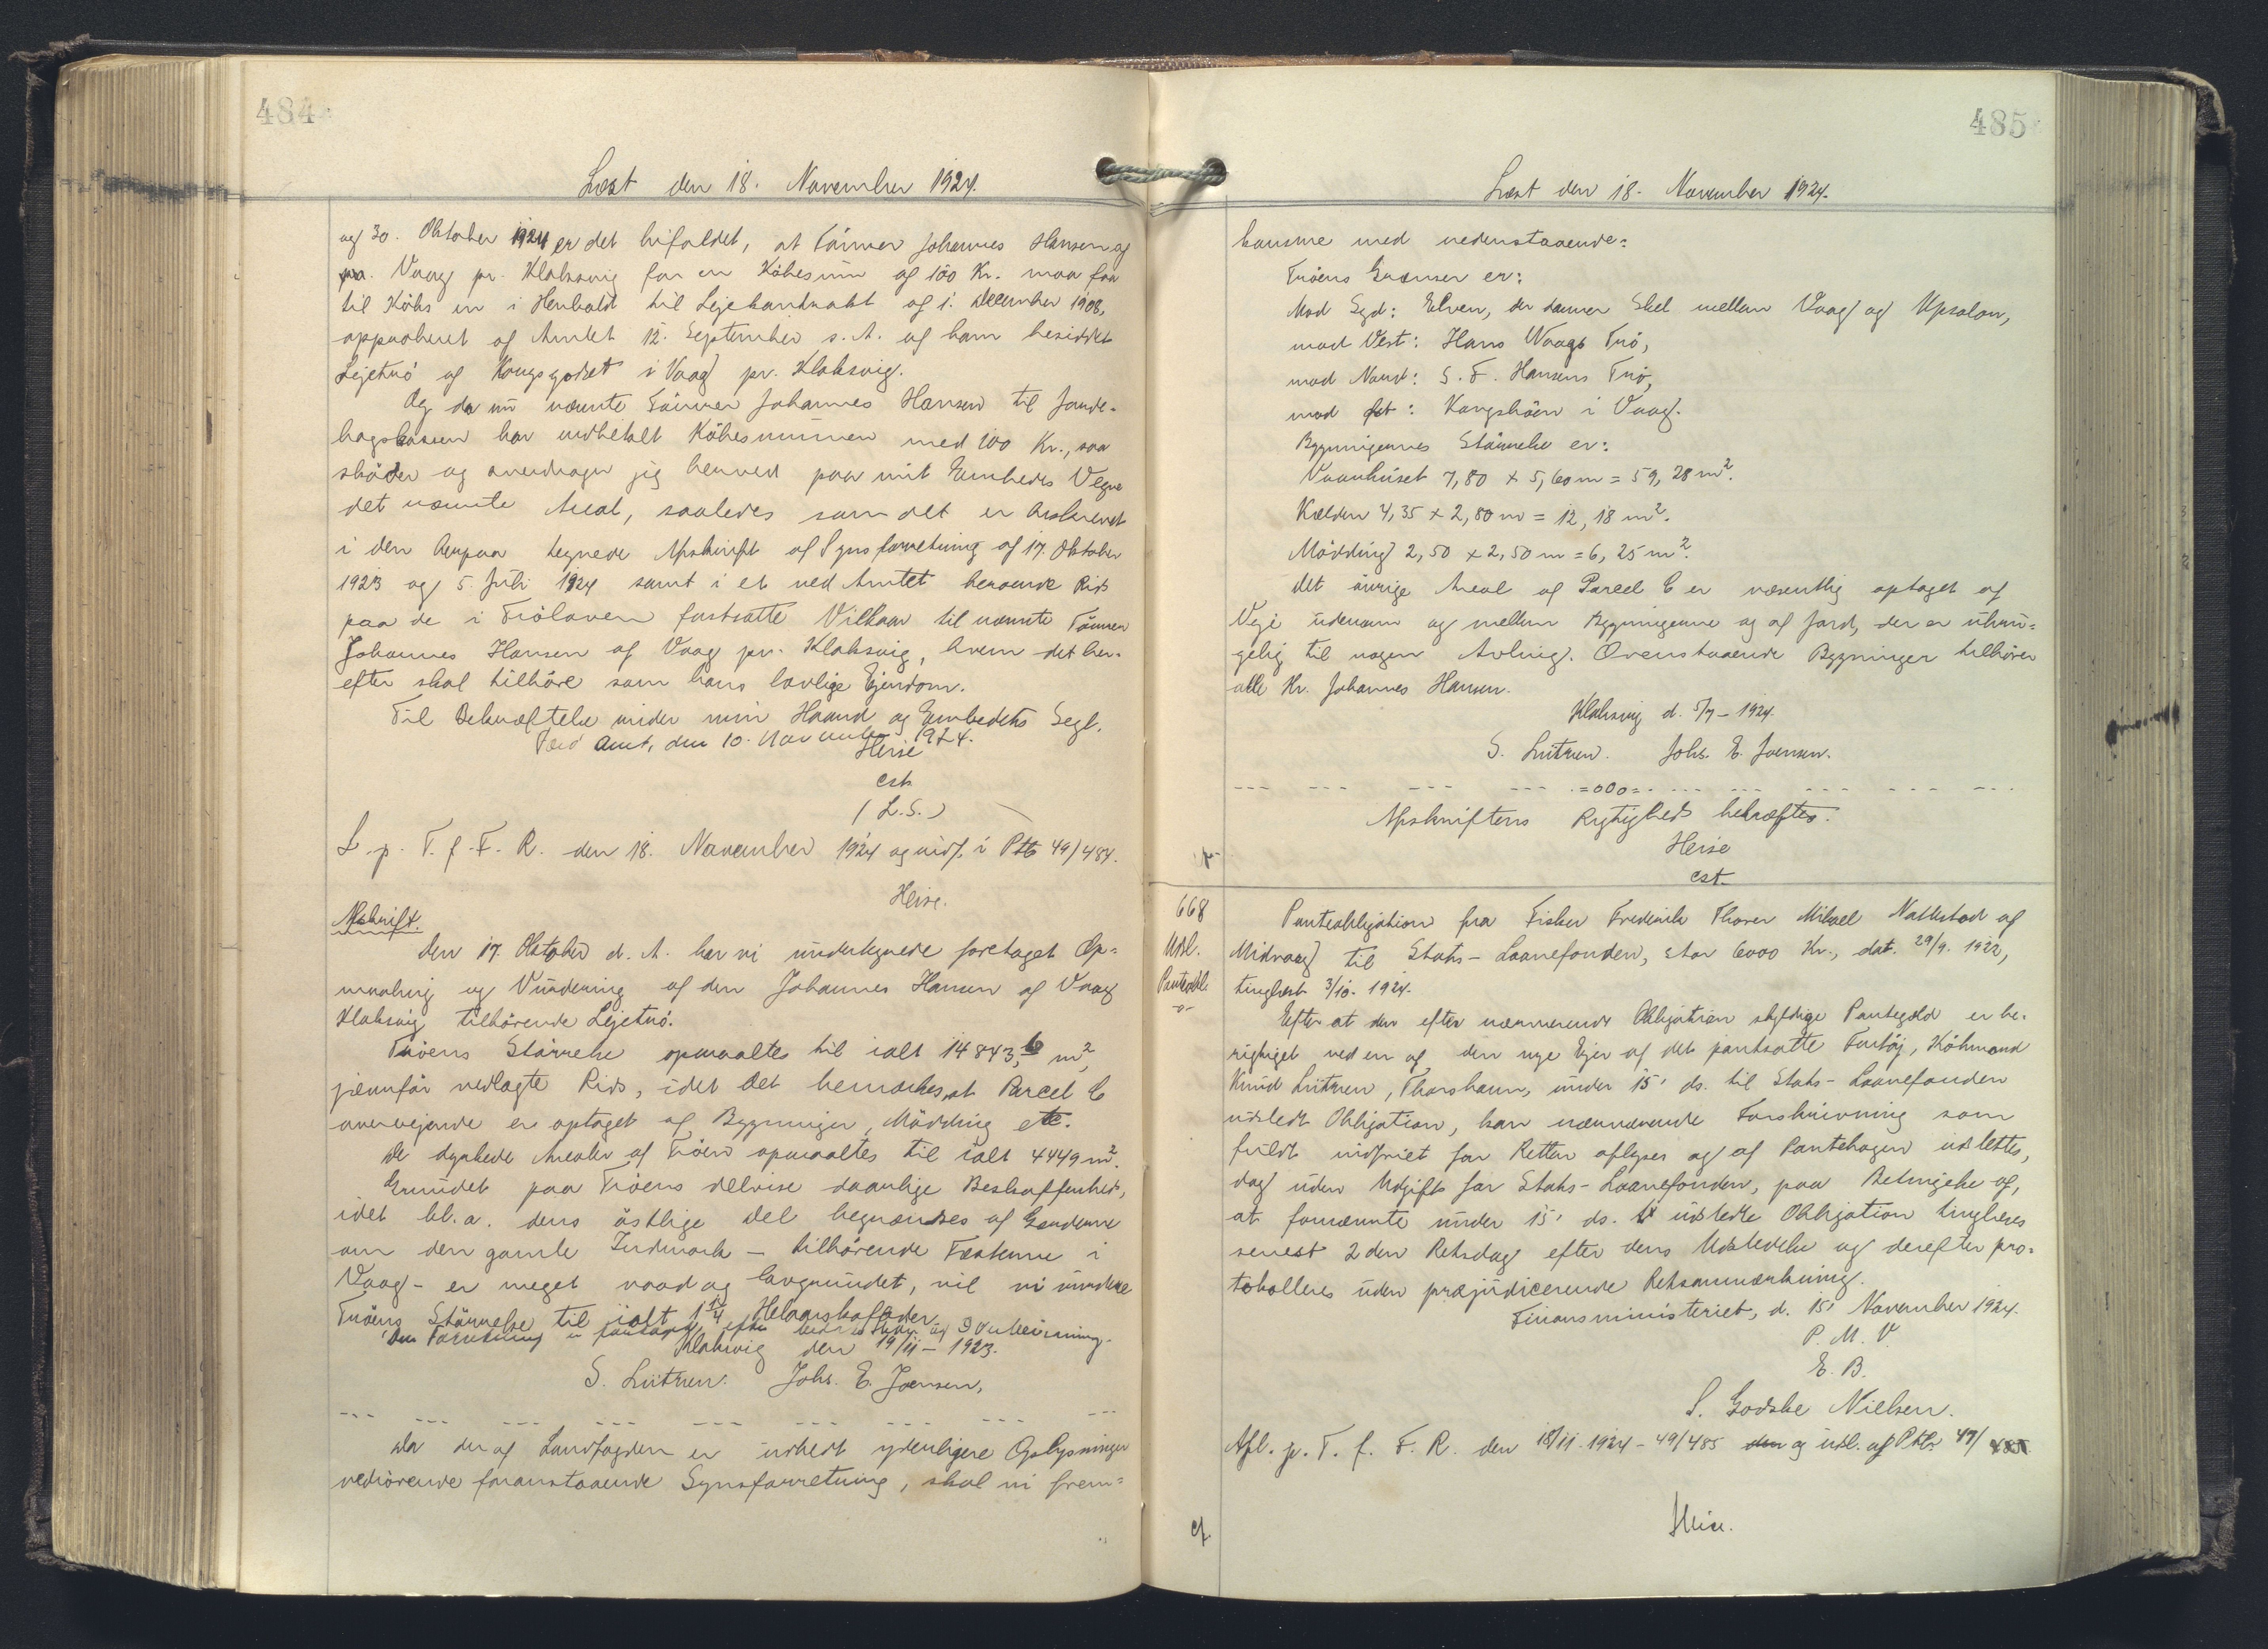 484
Læst den 18. November 1924.
og 30. Oktober 1924 er det bifaldet, at Tömrer Johannes Hansen af
Vaag pr. Klaksvig for en Köbesum af 100 Kr. maa faa
til Köbs en i Henhold til Lejekontrakt af 1. December 1908,
approberet af Amtet 12. September s. A. af ham besiddet
Lejetrö af Kongsgodset i Vaag pr. Klaksvig.
Og da nu nævnte Tömrer Johannes Hansen til Jorde-
bogskassen har indbetalt Köbesummen med 100 Kr., saa
sköder og overdrager jeg herved paa mit Embedes Vegne
det nævnte Areal, saaledes som det er beskrevet
i den herpaa tegnede Afskrift af Synsforretning af 17. Oktober
1923 og 5. Juli 1924 samt i et ved Amtet beroende Rids
paa de i Tröloven fastsatte Vilkaar til nævnte Tömrer
Johannes Hansen af Vaag pr. Klaksvig, hvem det her-
efter skal tilhöre som hans lovlige Ejendom.
Til Bekræftelse under min Haand og Embedets Segl.
Færö Amt, den 10. November 1924.
Heise
cst.
(L.S.)
L. p. T. f. F. R. den 18. November 1924 og indf. i Ptb 49/484.
Heise.
Afskrift.
Den 17. Oktober d. A. har vi undertegnede foretaget Op=
maaling og Vurdering af den Johannes Hansen af Vaag
Klaksvig tilhörende Lejetrö.
Tröens Störrelse opmaaltes til ialt 14843,6 m²,
jævnför vedlagte Rids, idet det bemærkes, at Parcel C
overvejende er optaget af Bygninger, Mödding etc.
De dyrkede Arealer af Tröen opmaaltes til ialt 4449 m².
Grundet paa Tröens delvise daarlige Beskaffenhed,
idet bl.a. dens östlige Del begrændses af Gærderne
om den gamle Indmark - tilhörende Fæsterne i
Vaag - er meget vaad og lavgrundet, vil vi vurdere
Tröens Störrelse til ialt 1¼ Helaarskofoder.
Den Forretning er foretaget efter bedste Skön og Overbevisning.
Klaksvig den 19/11 - 1923.
S. Lützen. Johs. E. Joensen,
--- --- --- --- --- --- --- --- ---
Da der af Landfogden er udbedt yderligere Oplysninger
vedrörende foranstaaende Synsforretning, skal vi frem=
485
Læst den 18. November 1924.
komme med nedenstaaende:
Tröens Grænser er:
Mod Syd: Elven, der danner Skel mellem Vaag og Upsalen,
mod Vest: Hans Waags Trö,
mod Nord: S. F. Hansens Trö,
mod Öst: Kongshöen i Vaag.
Bygningernes Störrelse er:
Vaanhuset 7,80 x 5,60 m = 59,28 m².
Kælder 4,35 x 2,80 m = 12,18 m².
Mödding 2,50 x 2,50 m = 6,25 m².
Det övrige Areal af Parcel C er væsentlig optaget af
Veje udenom og mellem Bygningerne og af Jord, der er uhun=
gelig til nogen Avling. Ovenstaaende Bygninger tilhörer
alle Hr. Johannes Hansen.
Klaksvig d. 5/7 - 1924.
S. Lützen. Johs. E. Joensen.
--- --- --- --- =000= --- --- --- --- ---
Afskriftens Rigtighed bekræftes.
Heise
cst.
668
Udl.
Panteobl.
Panteobligation fra Fisker Frederik Thorer Mikael Nattestad af
Midvaag til Stats-Laanefonden, stor 6000 Kr., dat. 29/9. 1922,
tinglæst 3/10. 1924.
Efter at den efter nærværende Obligation skyldige Pantegæld er be-
rigtiget ved en af den nye Ejer af det pantsatte Fartöj, Köbmand
Knud Lützen, Thorshavn, under 15' ds. til Stats-Laanefonden
udstedt Obligation, kan nærværende Forskrivning som
fuldt indfriet for Retten aflyses og af Pantebogen udslettes,
dog uden Udgift for Stats-Laanefonden, paa Betingelse af,
at fornævnte under 15' ds. udstedte Obligation tinglæses
senest 2den Retsdag efter dens Udstedelse og derefter pro=
tokolleres uden præjudicerende Retsanmærkning.
Finansministeriet, d. 15' November 1924.
P. M. V.
E. B.
S. Godske Nielsen.
Afl. p. T. f. F. R. den 18/11. 1924 - 49/485 og udl. af Ptb 47/
Heise.